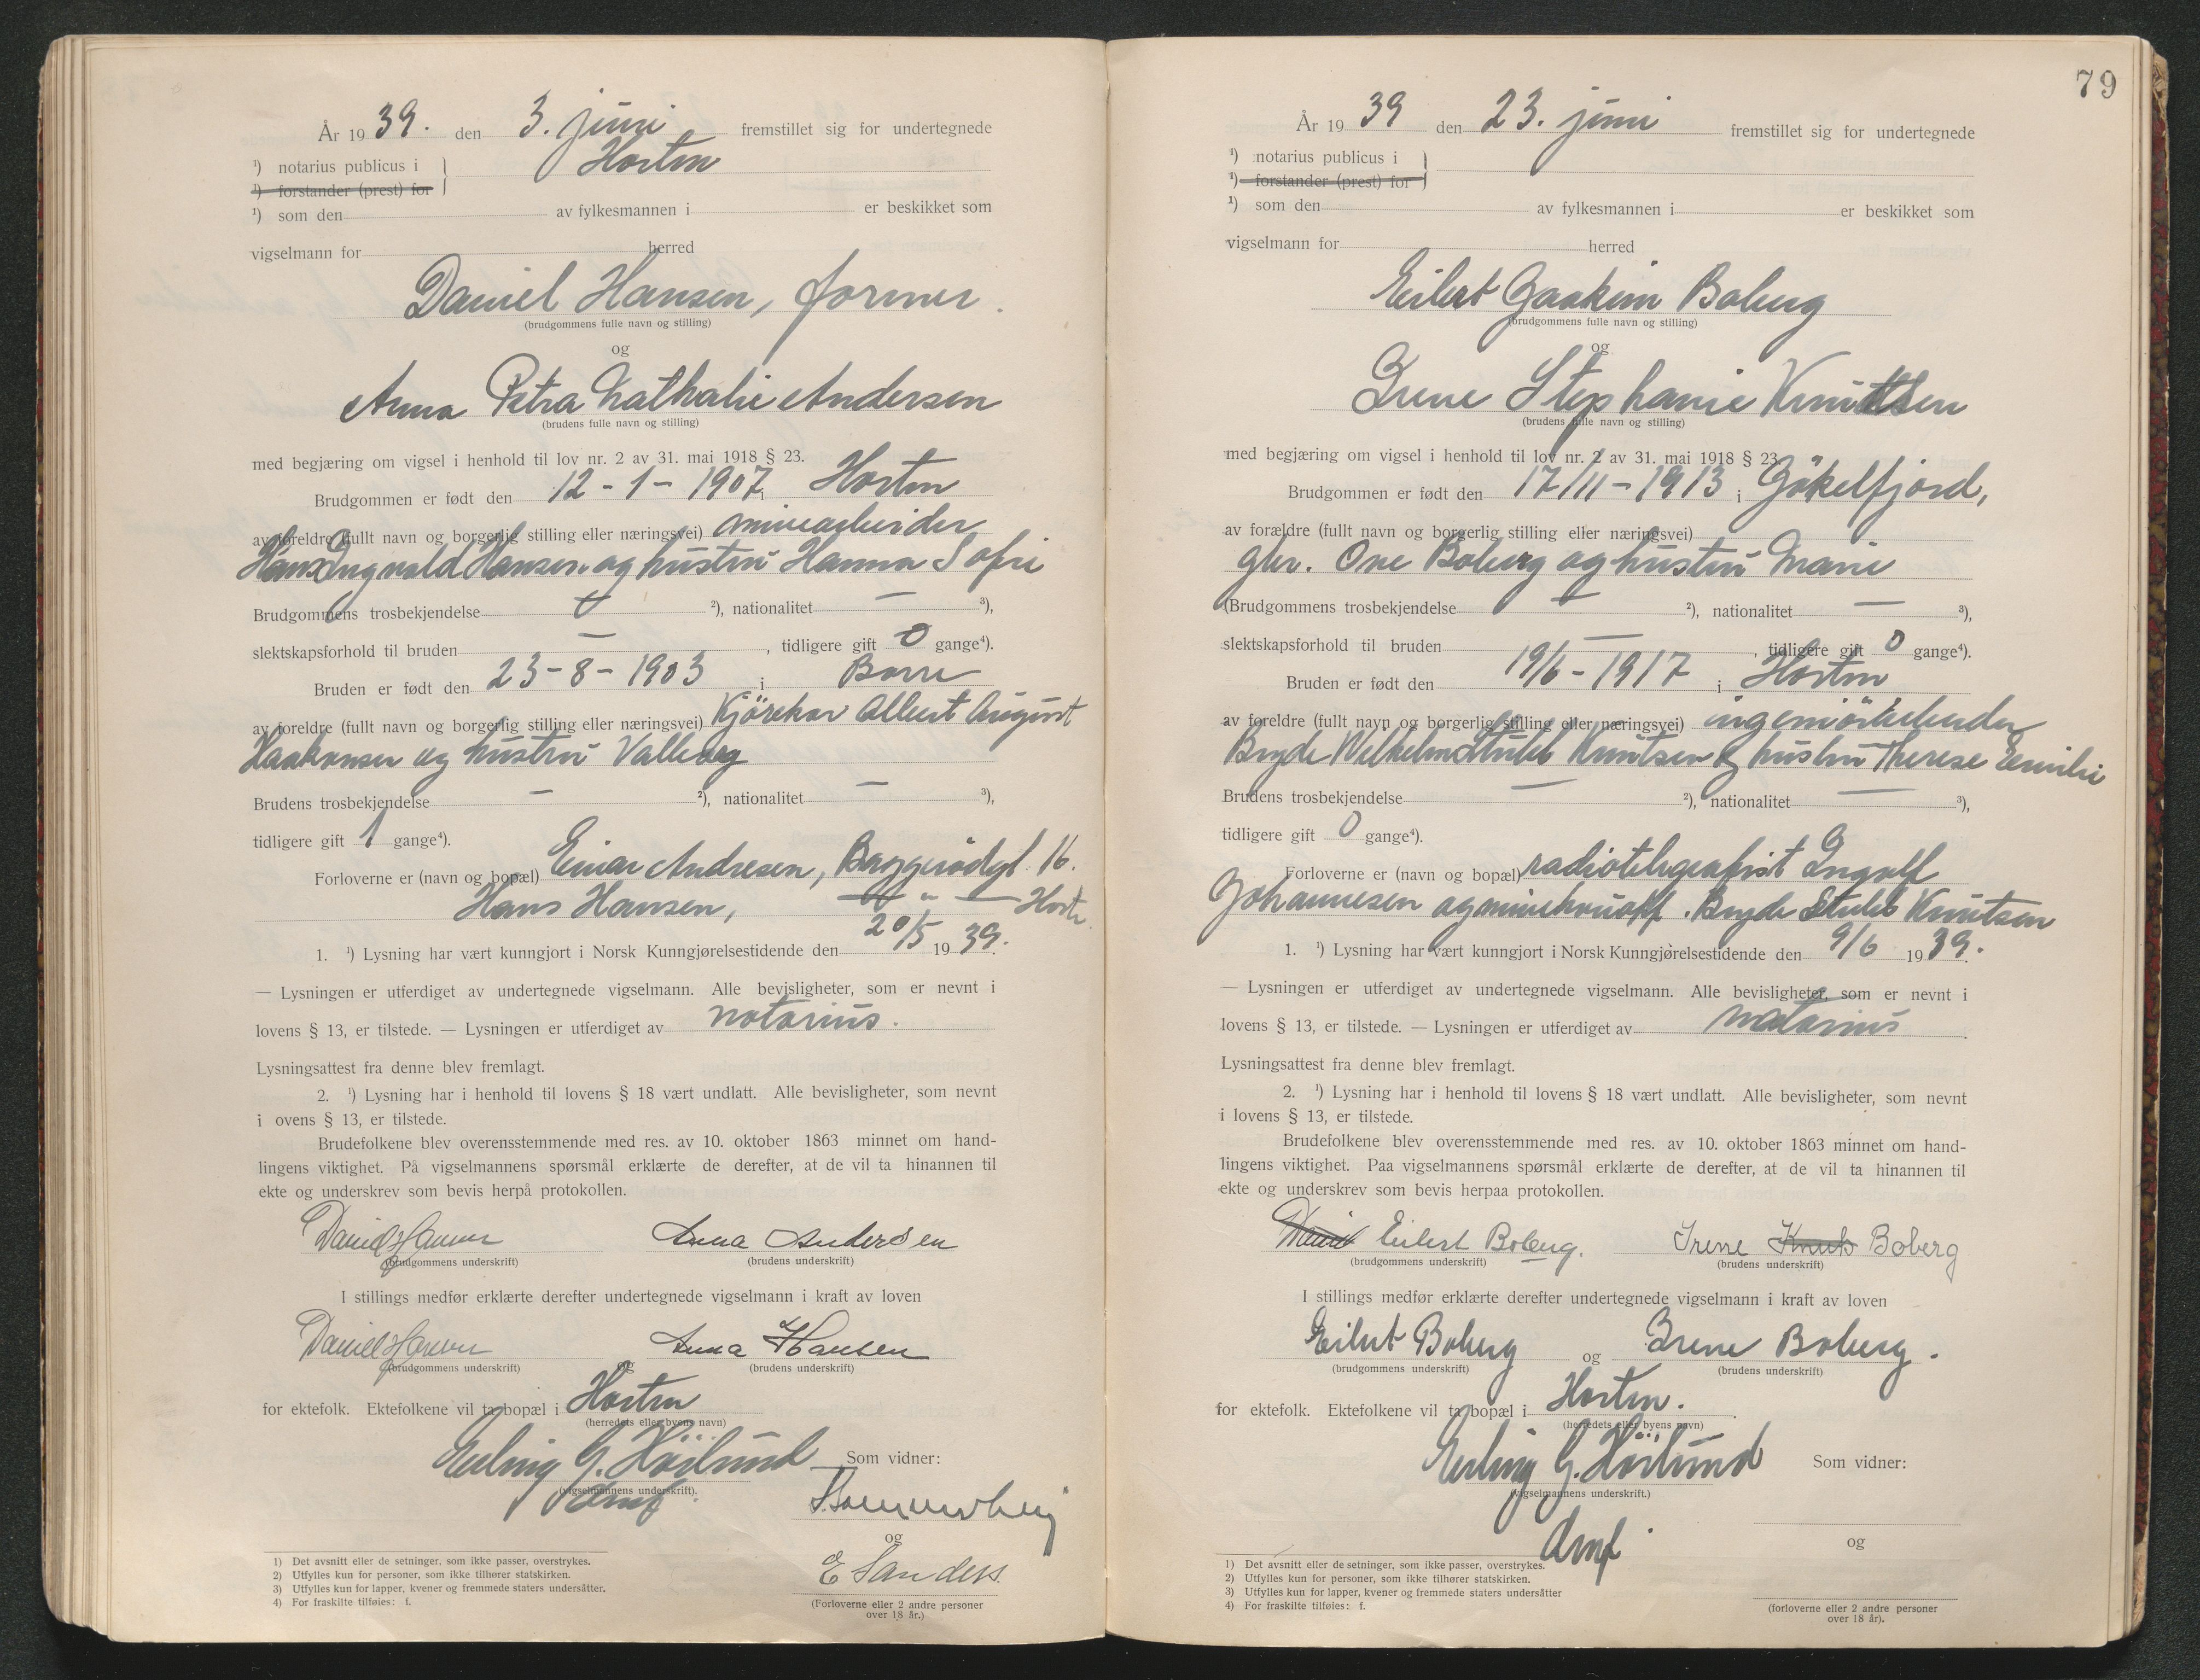 År 1939. den 3. juni fremstillet sig for undertegnede
¹) notarius publicus i Horten
¹) forstander (prest) for
¹) som den av fylkesmannen i er beskikket som
vigselmann for herred
Daniel Hansen, former.
(brudgommens fulle navn og stilling)
og
Anna Petra Nathalie Andersen
(brudens fulle navn og stilling)
med begjæring om vigsel i henhold til lov nr. 2 av 31. mai 1918 § 23.
Brudgommen er født den 12-1-1907 i Horten
av foreldre (fullt navn og borgerlig stilling eller næringsvei) minearbeider
Hans Ingvald Hansen og hustru Hanna Sofie
Brudgommens trosbekjendelse ²), nationalitet — ³),
slektskapsforhold til bruden —, tidligere gift 0 gange⁴).
Bruden er født den 23-8-1903 i Borre
av foreldre (fullt navn og borgerlig stilling eller næringsvei) Kjörekar Albert August
Haakonsen og hustru Valborg
Brudens trosbekjendelse — ²), nationalitet — ³),
tidligere gift 1 gange⁴).
Forloverne er (navn og bopæl) Einar Andresen, Baggerödgt. 16.
Hans Hansen, — " — Horten
1. ¹) Lysning har vært kunngjort i Norsk Kunngjørelsestidende den 20/5 1939.
— Lysningen er utferdiget av undertegnede vigselmann. Alle bevisligheter, som er nevnt i
lovens § 13, er tilstede. — Lysningen er utferdiget av notarius.
Lysningsattest fra denne blev fremlagt.
2. ¹) Lysning har i henhold til lovens § 18 vært undlatt. Alle bevisligheter, som nevnt
i ovens § 13, er tilstede.
Brudefolkene blev overensstemmende med res. av 10. oktober 1863 minnet om hand-
lingens viktighet. På vigselmannens spørsmål erklærte de derefter, at de vil ta hinannen til
ekte og underskrev som bevis herpå protokollen.
Daniel Hansen Anna Andersen
(brudgommens underskrift) (brudens underskrift)
I stillings medfør erklærte derefter undertegnede vigselmann i kraft av loven
Daniel Hansen og Anna Hansen
(brudgommens underskrift) (brudens underskrift)
for ektefolk. Ektefolkene vil ta bopæl i Horten
(herredets eller byens navn)
Erling G. Hörlund Som vidner:
(vigselmannens underskrift).
og
E Sanders.
(Forloverne eller 2 andre personer
over 18 år.)
1) Det avsnitt eller de setninger, som ikke passer, overstrykes.
2) Utfylles kun for personer, som ikke tilhører statskirken.
3) Utfylles kun for lapper, kvener og fremmede staters undersåtter.
4) For fraskilte tilføies: f.
79
År 1939 den 23. juni fremstillet sig for undertegnede
¹) notarius publicus i
¹) forstander (prest) for
¹) som den av fylkesmannen i er beskikket som
vigselmann for herred
Eilert Joakim Boberg
(brudgommens fulle navn og stilling)
og
Irene Stephanie Knutsen
(brudens fulle navn og stilling)
med begjæring om vigsel i henhold til lov nr. 2 av 31. mai 1918 § 23
Brudgommen er født den 17/11-1913 i Jökelfjord,
av forældre (fullt navn og borgerlig stilling eller næringsvei)
gbr. Ove Boberg og hustru Marie
(Brudgommens trosbekjendelse — ²), nationalitet — ³),
slektskapsforhold til bruden —, tidligere gift 0 gange⁴).
Bruden er født den 19/6-1917 i Horten
av foreldre (fullt navn og borgerlig stilling eller næringsvei) ingeniörarbeider
Bryde Wilhelm Stubb Knutsen og hustru Therese Emilie
Brudens trosbekjendelse — ²), nationalitet — ³),
tidligere gift 0 gange⁴).
Forloverne er (navn og bopæl) radiotelegrafist Ingolf
Johannesen og Bryde Stubb Knutsen
1. ¹) Lysning har vært kunngjort i Norsk Kunngjørelsestidende den 9/6 1939.
— Lysningen er utferdiget av undertegnede vigselmann. Alle bevisligheter, som er nevnt i
lovens § 13, er tilstede. — Lysningen er utferdiget av notarius.
Lysningsattest fra denne blev fremlagt.
2. ¹) Lysning har i henhold til lovens § 18 vært undlatt. Alle bevisligheter, som nevnt
i lovens § 13, er tilstede.
Brudefolkene blev overensstemmende med res. av 10. oktober 1863 minnet om hand-
lingens viktighet. Paa vigselmannens spørsmål erklærte de derefter, at de vil ta hinannen til
ekte og underskrev som bevis herpaa protokollen.
Eilert Boberg. Irene Knuts Boberg
(brudgommens underskrift) (brudens underskrift)
I stillings medfør erklærte derefter undertegnede vigselmann i kraft av loven
Eilert Boberg og Irene Boberg.
(brudgommens underskrift) (brudens underskrift)
for ektefolk. Ektefolkene vil ta bopæl i Horten.
(herredets eller byens navn)
Erling G. Hörlund Som vidner:
(vigselmannens underskrift.)
og
(forloverne eller 2 andre personer
over 18 år).
1) Det avsnitt eller de setninger, som ikke passer, overstrykes.
2) Utfylles kun for personer, som ikke tilhører statskirken.
3) Utfylles kun for lapper, kvener og fremmede staters undersåtter
4) For fraskilte tilføies: f.